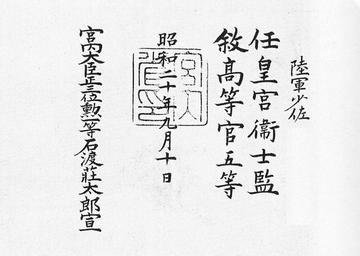 陸軍少佐
任皇宮衞士監
敍高等官五等
昭和二十年九月十日
宮内大臣正三位勲一等石渡荘太郎宣